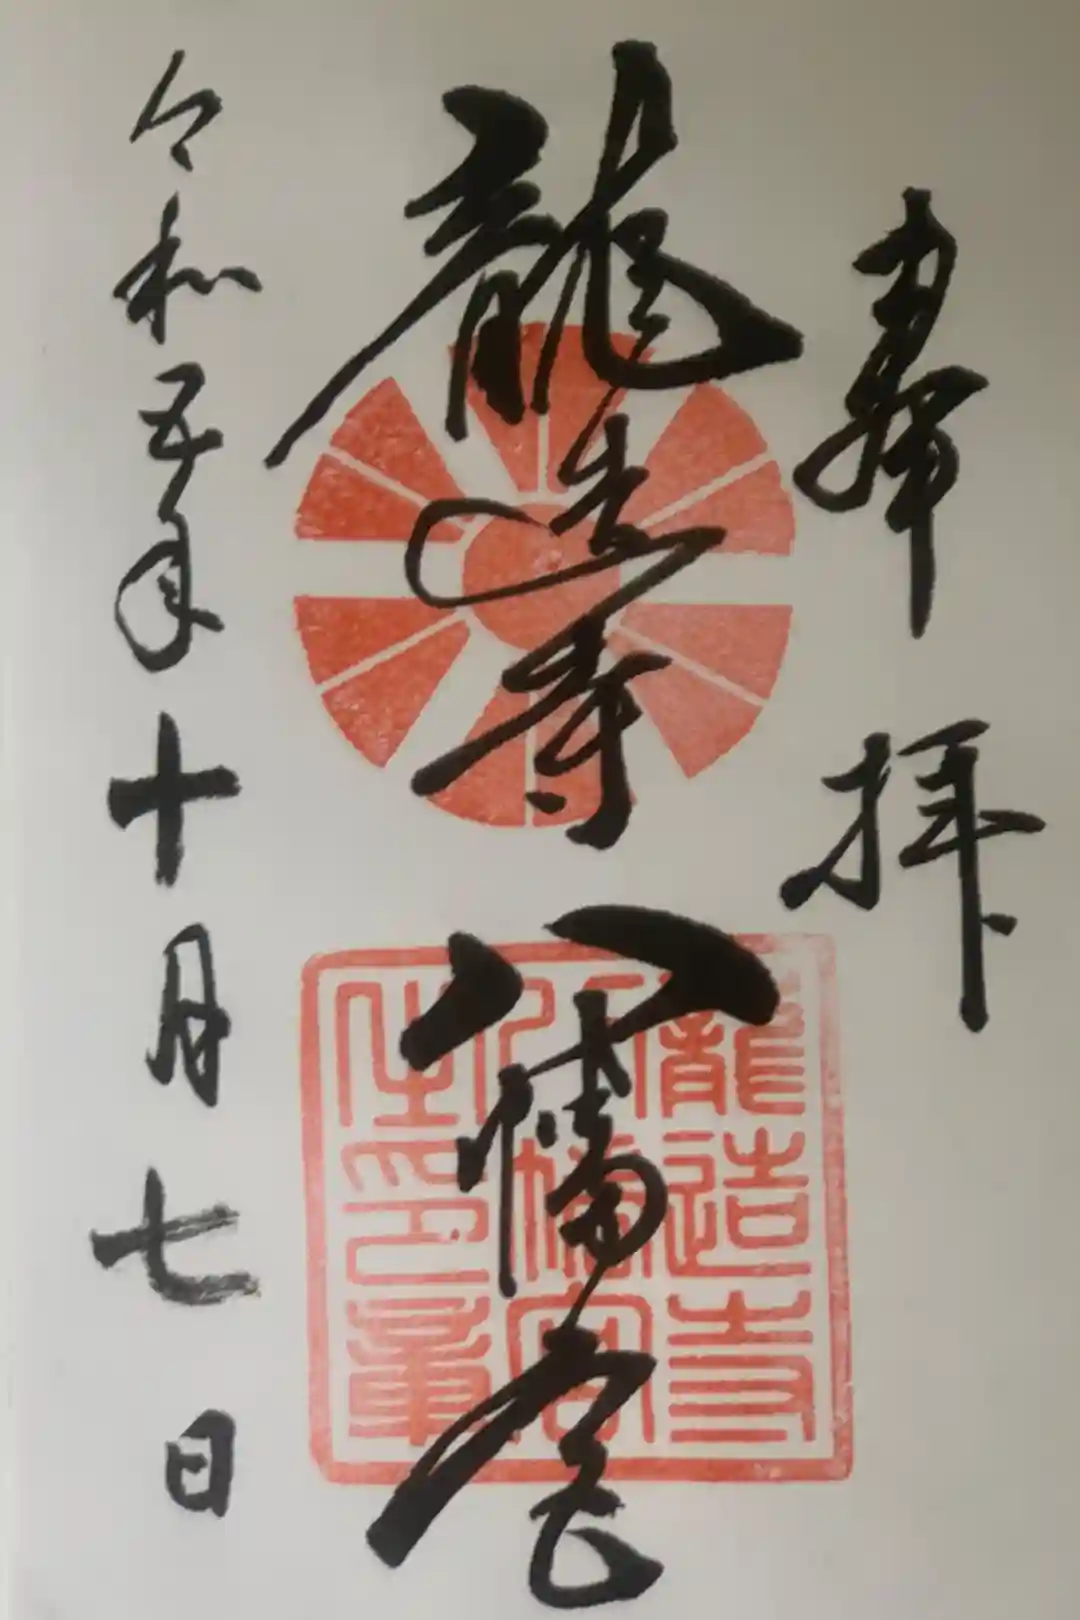 奉拝
龍造寺
八幡宮
龍造寺
八幡宮
令和五年十月七日